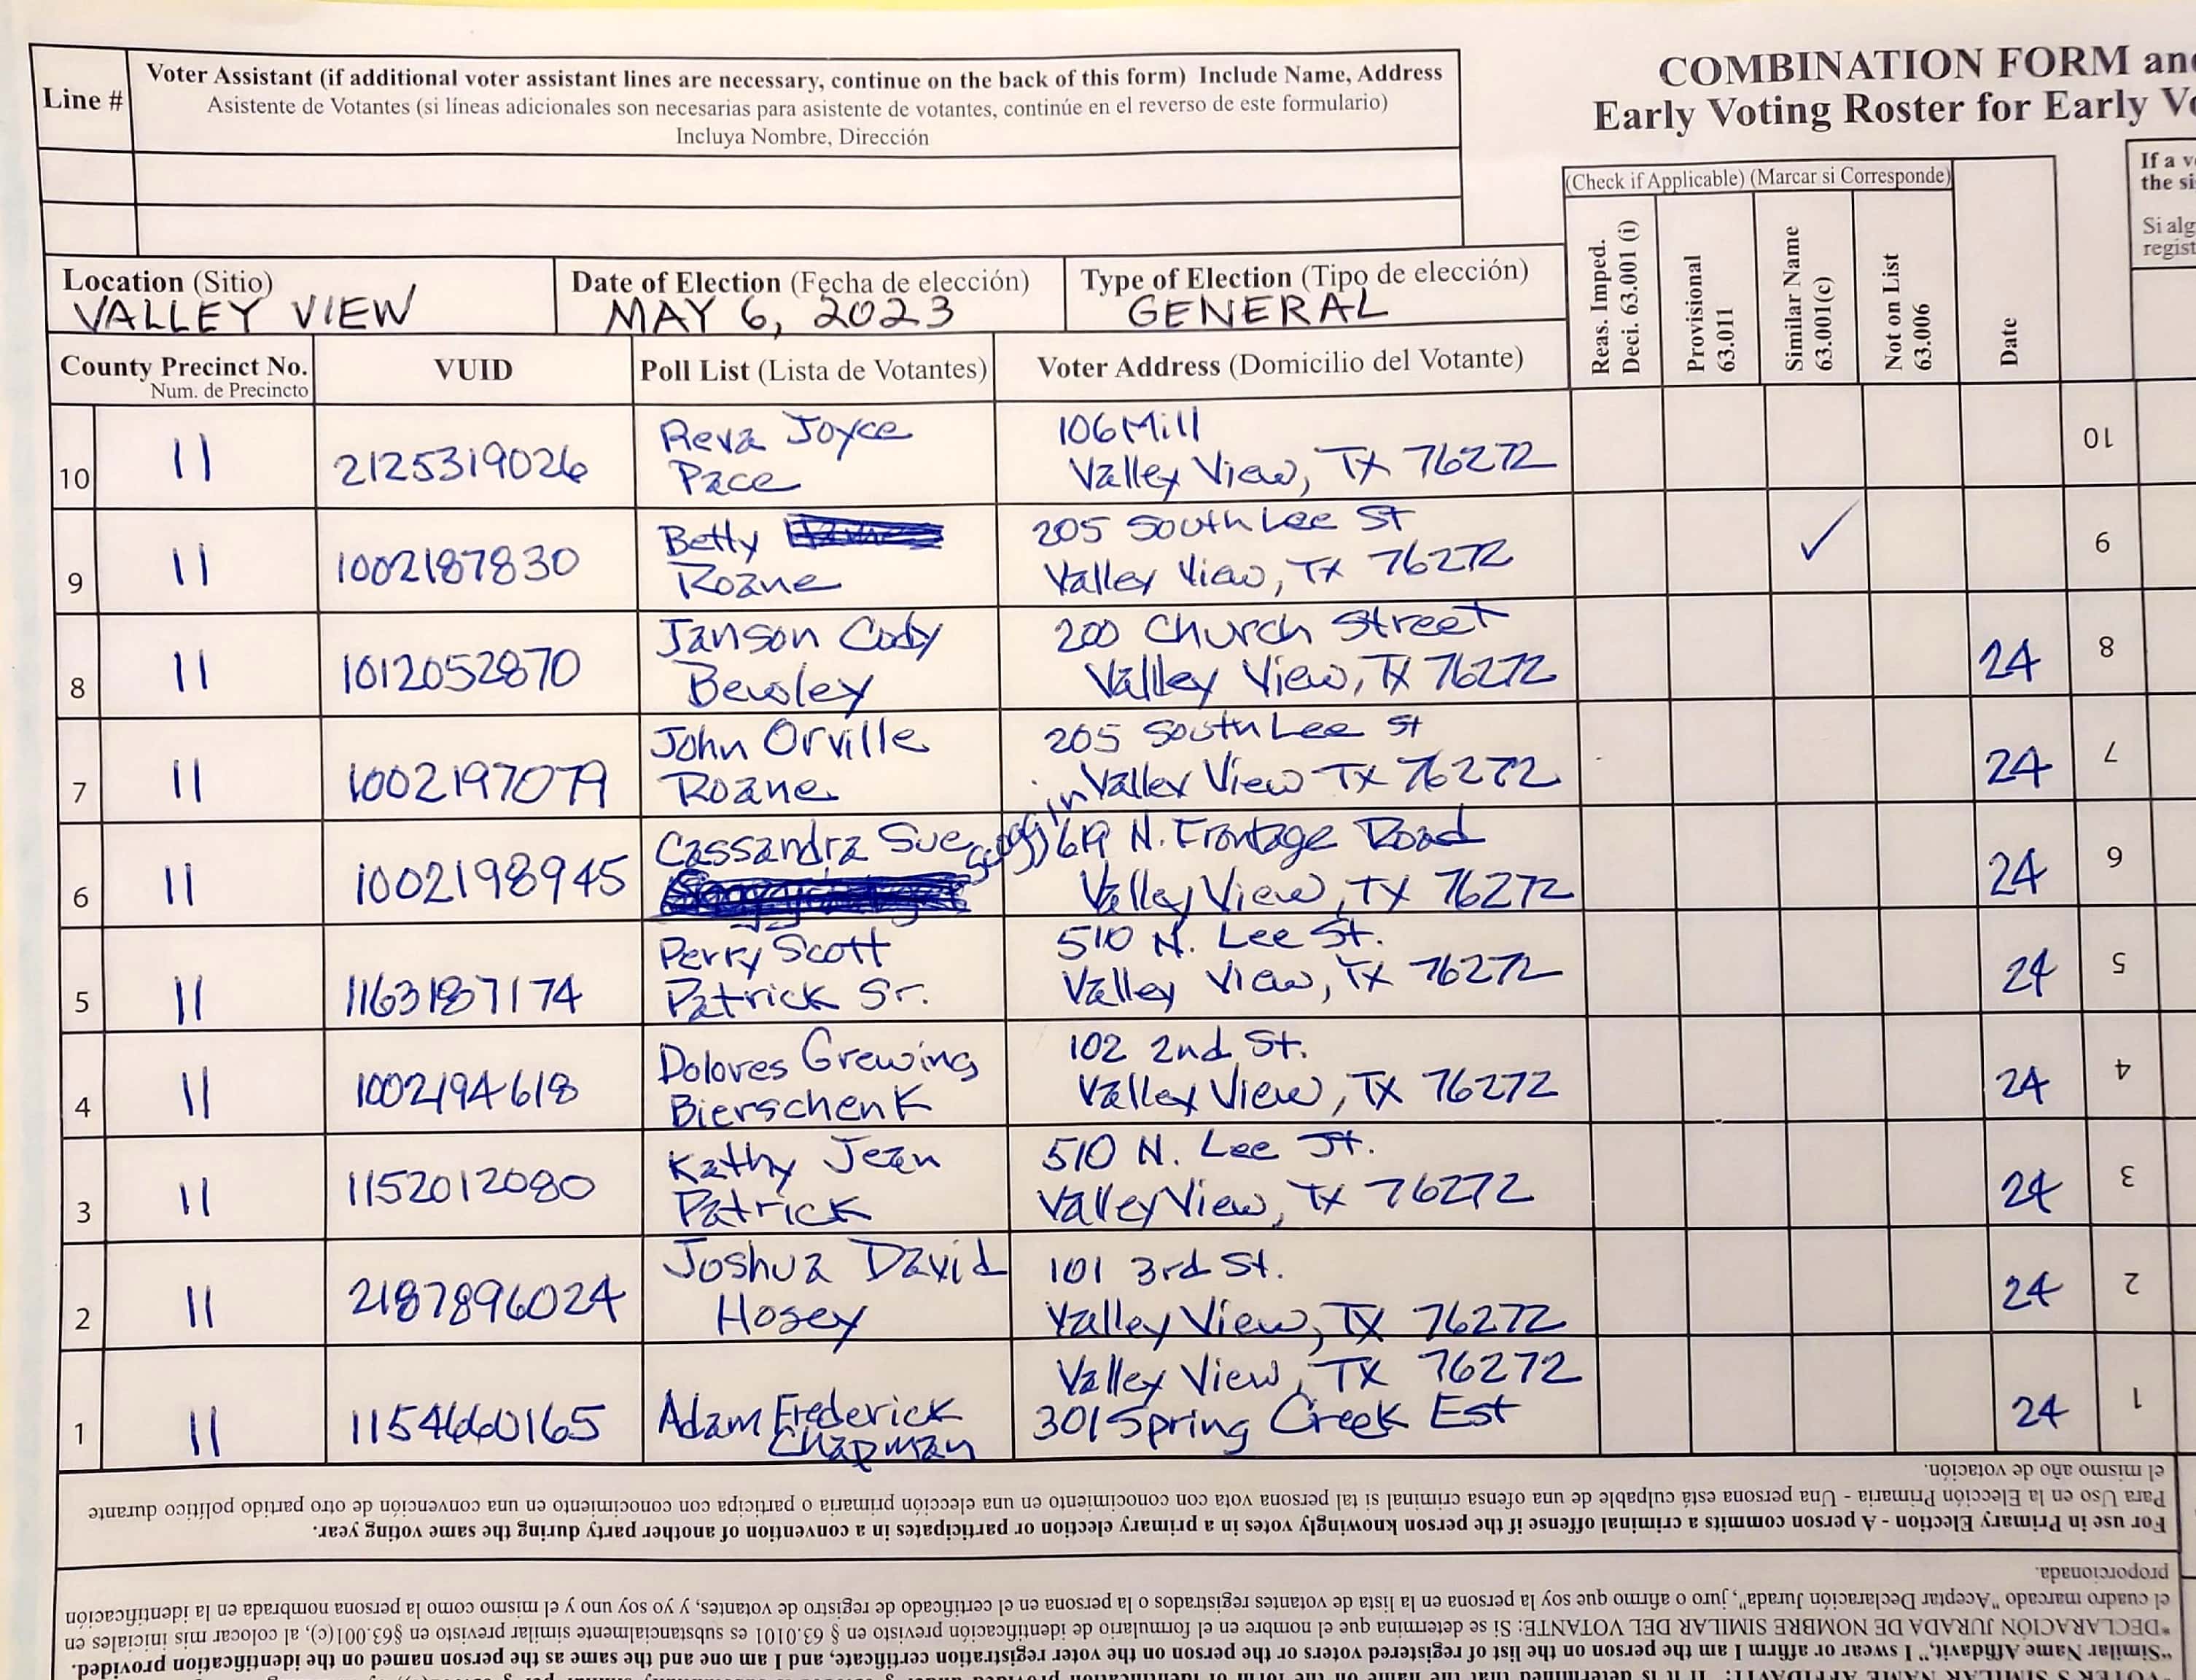 Line #
Voter Assistant (if additional voter assistant lines are necessary, continue on the back of this form) Include Name, Address
Asistente de Votantes (si líneas adicionales son necesarias para asistente de votantes, continúe en el reverso de este formulario)
Incluya Nombre, Dirección
COMBINATION FORM and
Early Voting Roster for Early Vo
(Check if Applicable) (Marcar si Corresponde)
Reas. Imped.
Deci. 63.001 (i)
Provisional
63.011
Similar Name
63.001(c)
Not on List
63.006
Date
If a v
the si
Si alg
regist
Location (Sitio)
VALLEY VIEW
Date of Election (Fecha de elección)
MAY 6, 2023
Type of Election (Tipo de elección)
GENERAL
County Precinct No.
Num. de Precincto
VUID
Poll List (Lista de Votantes)
Voter Address (Domicilio del Votante)
10 11 2125319026 Reva Joyce
Pace
106 Mill
Valley View, TX 76272
10
9 11 1002187830 Betty
Roane
205 South Lee St
Valley View, TX 76272
✓ 9
8 11 1012052870 Janson Cody
Bewley
200 Church Street
Valley View, TX 76272
24 8
7 11 1002197079 John Orville
Roane
205 South Lee St
Valley View TX 76272
24 7
6 11 1002198945 Cassandra Sue
Scoggin
619 N. Frontage Road
Valley View, TX 76272
24 6
5 11 1163187174 Perry Scott
Patrick Sr.
510 N. Lee St.
Valley View, TX 76272
24 5
4 11 1002194618 Dolores Grewing
Bierschenk
102 2nd St.
Valley View, TX 76272
24 4
3 11 1152012080 Kathy Jean
Patrick
510 N. Lee St.
Valley View, TX 76272
24 3
2 11 2187896024 Joshua David
Hosey
101 3rd St.
Valley View, TX 76272
24 2
1 11 1154660165 Adam Frederick
Chapman
Valley View, TX 76272
301 Spring Creek Est
24 1
For use in Primary Election - A person commits a criminal offense if the person knowingly votes in a primary election or participates in a convention of another party during the same voting year.
Para Uso en la Elección Primaria - Una persona está culpable de una ofensa criminal si tal persona vota con conocimiento en una elección primaria o participa con conocimiento en una convención de otro partido político durante
el mismo año de votación.
"Similar Name Affidavit," I swear or affirm I am the person on the list of registered voters or the person on the voter registration certificate, and I am one and the same as the person named on the identification provided.
*DECLARACIÓN JURADA DE NOMBRE SIMILAR DEL VOTANTE: Si se determina que el nombre en el formulario de identificación previsto en § 63.0101 es substancialmente similar previsto en §63.001(c), al colocar mis iniciales en
el cuadro marcado "Aceptar Declaración Jurada", juro o afirmo que soy la persona en la lista de votantes registrados o la persona en el certificado de registro de votantes, y yo soy uno y el mismo como la persona nombrada en la identificación
proporcionada.